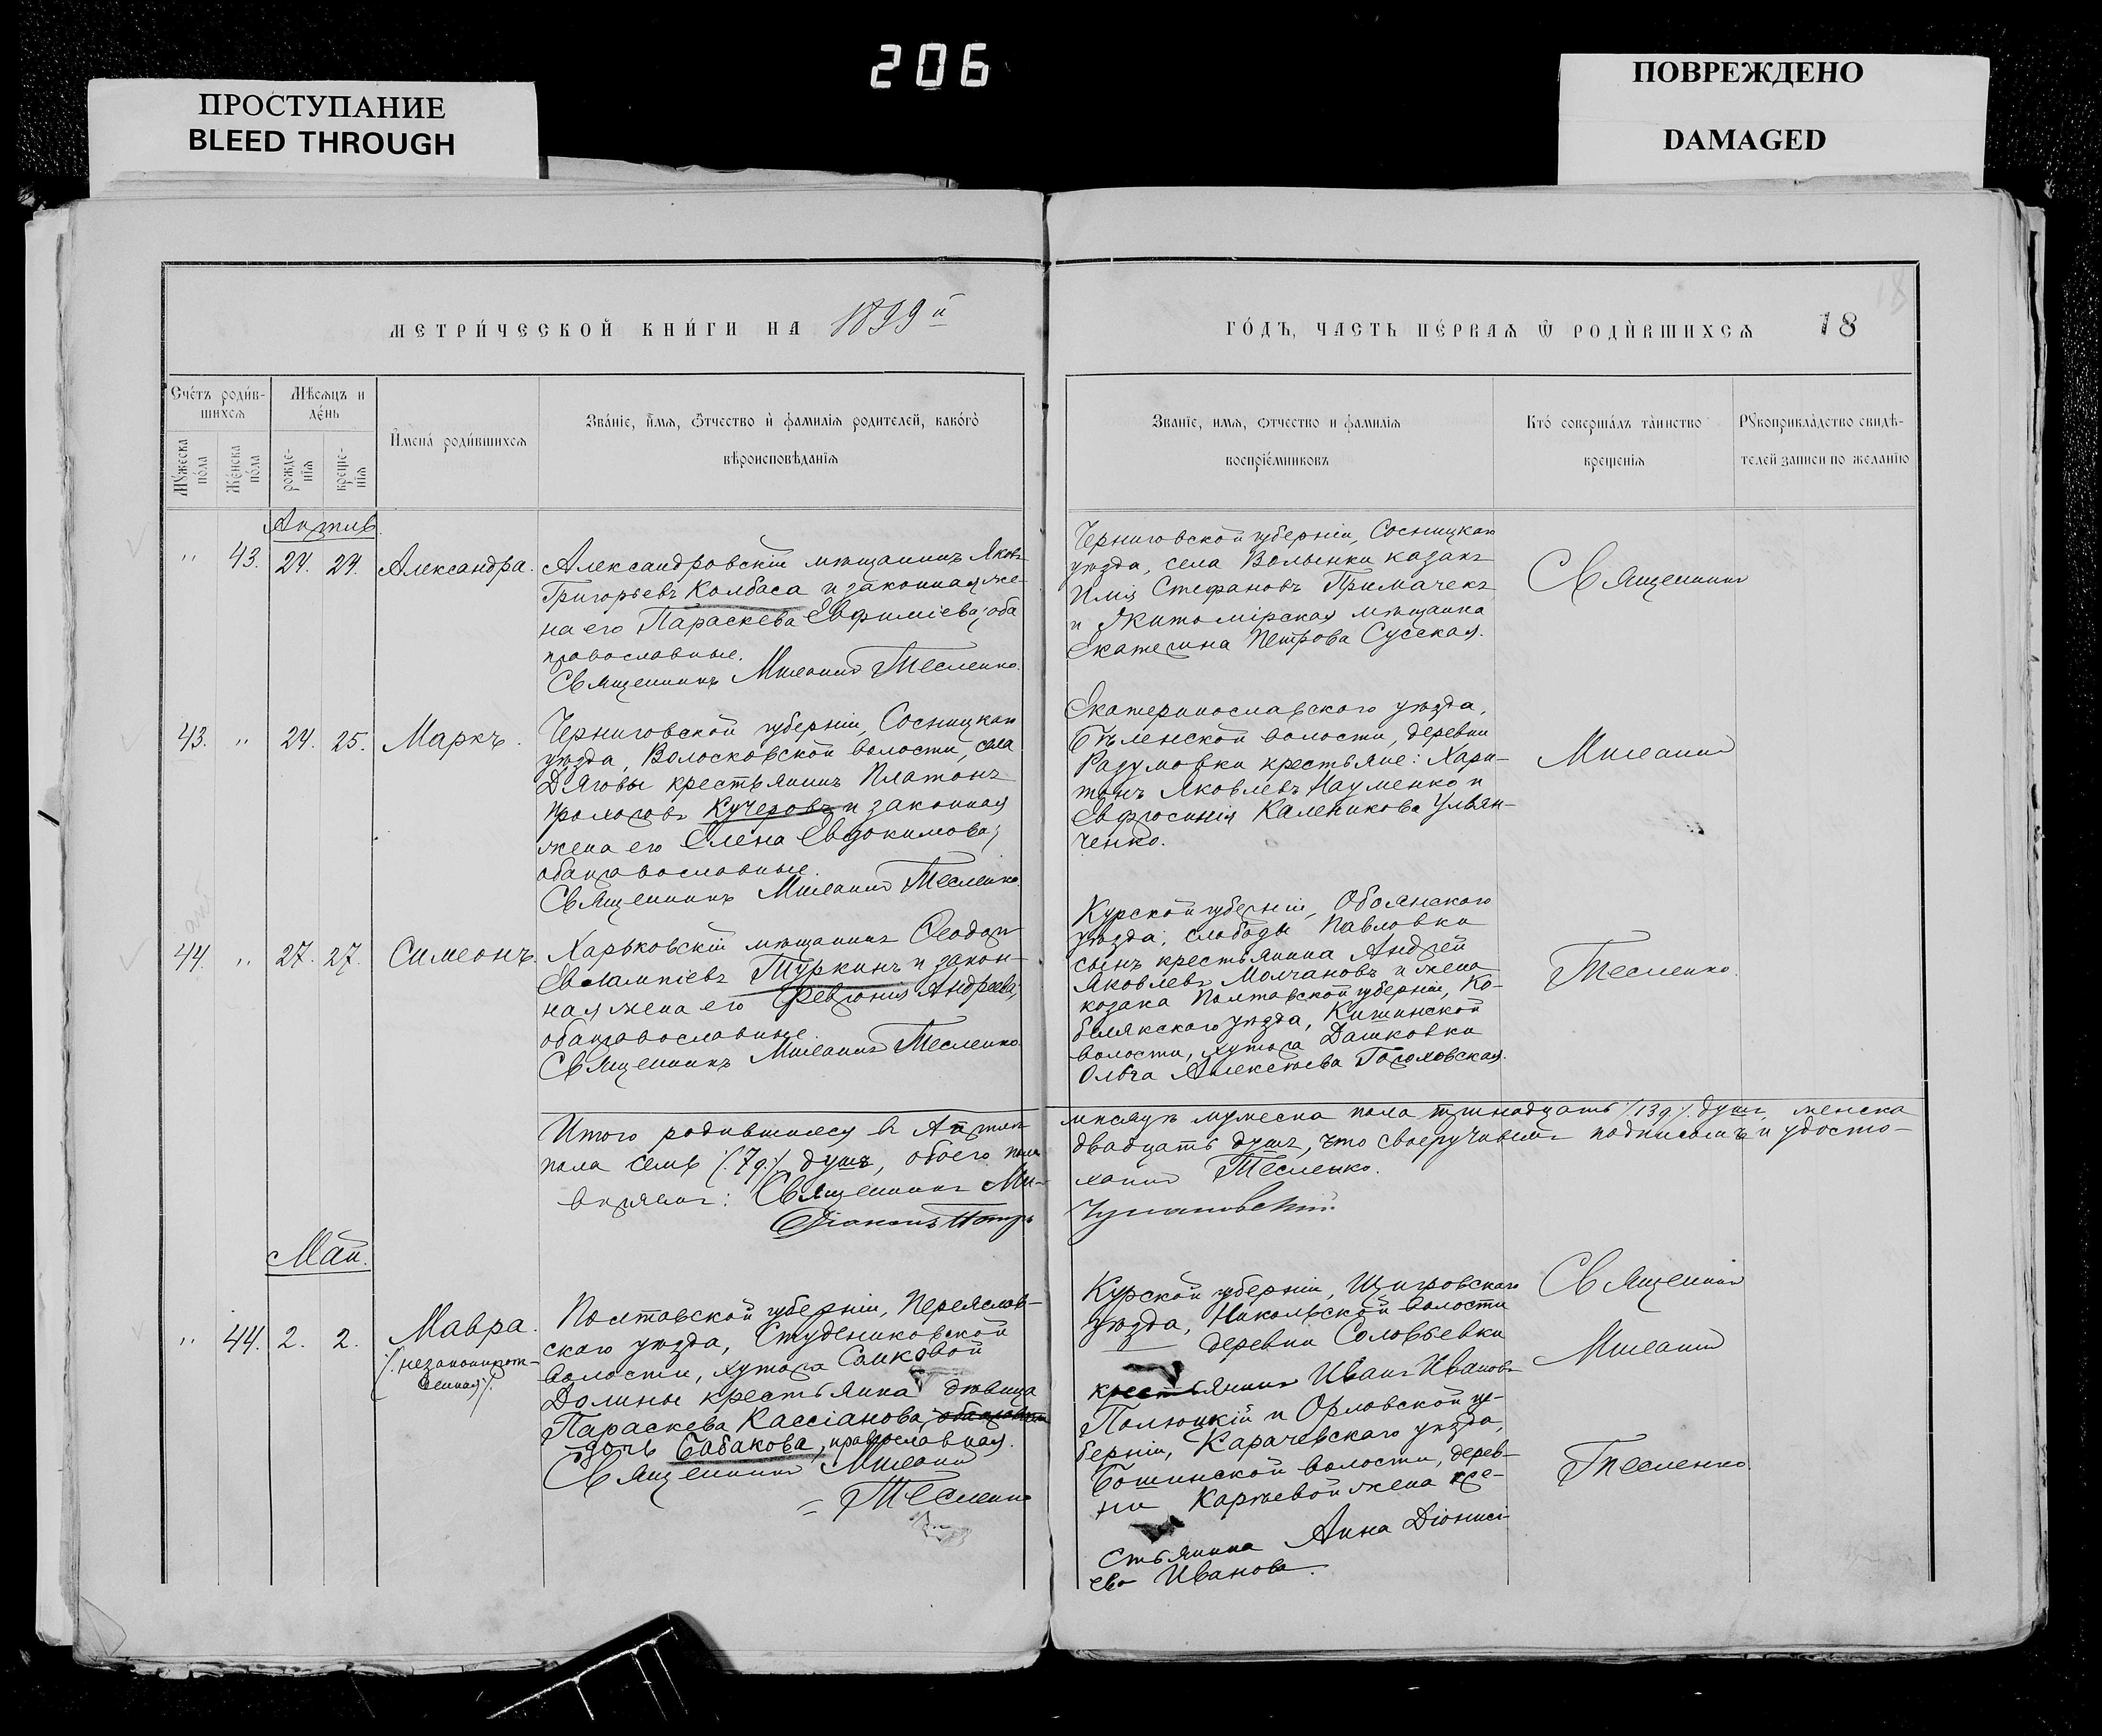 206
ПРОСТУПАНИЕ
BLEED THROUGH
ПОВРЕЖДЕНО
DAMAGED
МЕТРИ́ЧЕСКОЙ КНИ́ГИ НА 1899й
ГО́ДЪ, ЧАСТЬ ПЕ́РВАѦ Ѿ РОДИ́ВШИХСѦ 18
Сче́тъ роди́в-
шихсѧ
Мѣ́сѧцъ и
де́нь
Мꙋжеска
по́ла
Же́нска
по́ла
рожде-
нїѧ
креще-
нїѧ
И҆мена́ роди́вшихсѧ
Зва́нїе, и҆́мѧ, ѻ҆́тчество и҆ фамилїѧ родителей, како́гѡ
вѣроисповѣ́данїѧ
Званїе, имѧ, ѻтчество и фамилїѧ
воспрїе́мниковъ
Кто́ соверша́лъ та́инство
крещенїѧ
Рꙋкоприкла́дство свидѣ́-
телей записи по желанїю
Апрель
" 43. 24. 24. Александра.
Александровскій мѣщанинъ Яковъ
Григорьевъ Колбаса и законная же-
на его Параскева Евфиміева; оба
православные.
Священникъ Тесленко.
Черниговской губерніи, Сосницкаго
уѣзда, села Волынки казакъ
Стефановъ Примаченъ
и Житомірская мѣщанка
Екатерина Петрова Сусская.
Священникъ
43. " 24. 25. Маркъ.
Черниговской губерніи, Сосницкаго
уѣзда, Волосковской волости, села
Дяговы крестьянинъ Платонъ
Кучеровъ и законная
жена его Елена Евдокимова;
оба православные.
Священникъ Тесленко.
Екатеринославского уѣзда,
Бѣленской волости, деревни
Разумовки крестьяне: Хари-
тонъ Яковлевъ Науменко и
Евфросинія Каленикова Ульян-
ченко.
44. " 27. 27. Симеонъ.
Харьковскій мѣщанинъ Ѳеодоръ
Евлампіевъ Туркинъ и закон-
ная жена его Февронія Андреева;
оба православные.
Священникъ Тесленко.
Курской губерніи, Обоянскаго
уѣзда, слободы Павловки
сынъ крестьянина Андрей
Яковлевъ Молчановъ и жена
козака Полтавской губерніи, Ко-
белякскаго уѣзда, Кишинской
волости, хутора Дашковки
Ольга Алексѣева
Тесленко.
Итого родившихся въ Апрѣлѣ
мѣсяцѣ мужеска пола тринадцать /.13д./. душъ, женска
пола семь /.7д./. душъ, обоего пола
двадцать душъ, что своеручнымъ подписомъ и удосто-
вѣряемъ: Священникъ
Тесленко.
Діаконъ Петръ
Май.
" 44. 2. 2. Мавра.
/.незаконнорож-
денная/.
Полтавской губерніи, Переяслав-
скаго уѣзда, Студениковской
волости, хутора Самковой
Долины крестьянка дѣвица
Параскева Кассіанова
дочь Бабакова, православная.
Священникъ
= Тесленко
Курской губерніи, Щигровскаго
уѣзда, Никольской волости
деревни Соловьевки
крестьянинъ Иванъ Ивановъ
и Орловской гу-
берніи, Карачевскаго уѣзда,
Бошинской волости, дерев-
ни жена кре-
стьянина Анна Діонисі-
ева Иванова.
Священникъ
Тесленко.